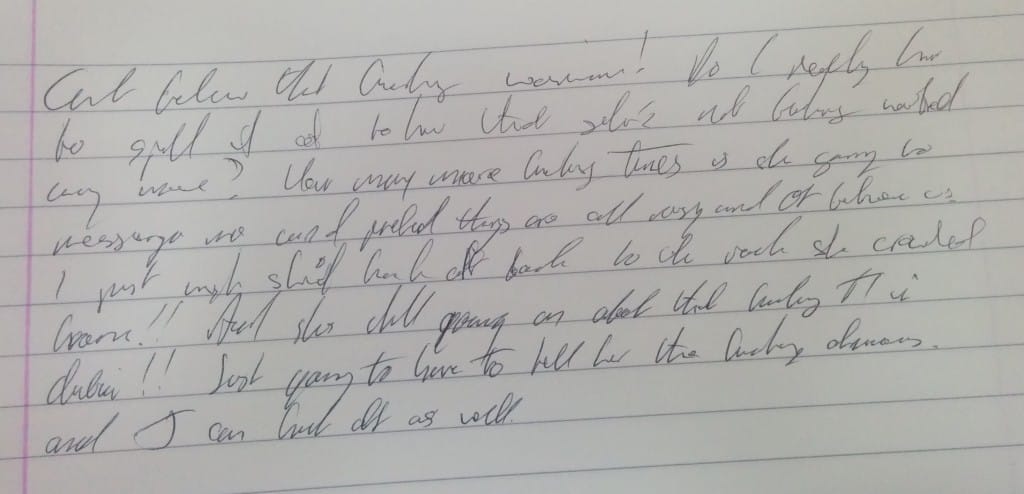 Can't believe that fucking woman! Do I really have
to spell it out to her that she's not fucking wanted
any more? How many more fucking times is she going to
message me and pretend things are all rosy and ok between us.
I just wish she'd fuck off back to the rock she crawled
from!! And she's still going on about that fucking
!! Just going to have to tell her the fucking obvious
and I can fuck off as well.